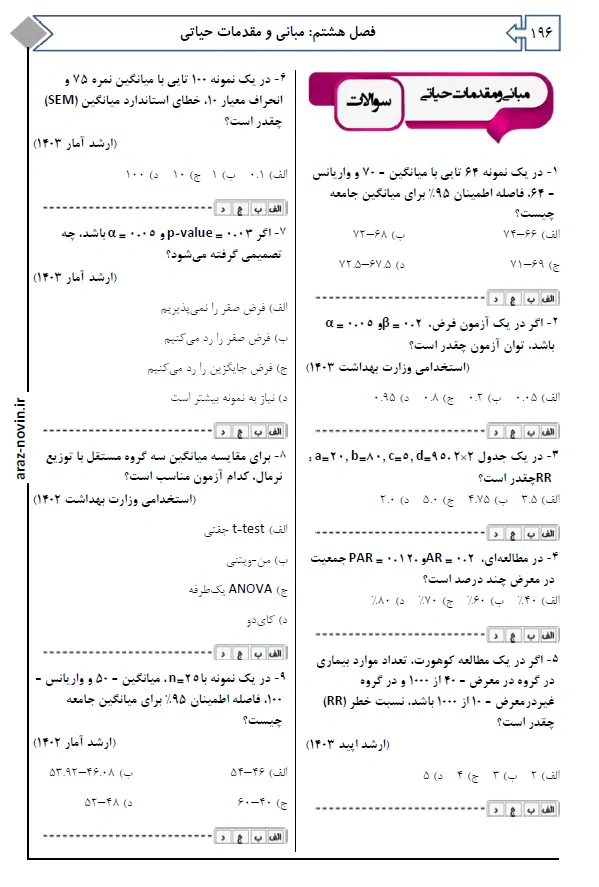 ۱۹۶
فصل هشتم: مبانی و مقدمات حیاتی
مبانی و مقدمات حیاتی
سوالات
۱- در یک نمونه ۶۴ تایی با میانگین = ۷۰ و واریانس
= ۶۴، فاصله اطمینان ۹۵٪ برای میانگین جامعه
چیست؟
الف) ۶۶–۷۴ ب) ۶۸–۷۲
ج) ۶۹–۷۱ د) ۶۷.۵–۷۲.۵
الف ب ج د
۲- اگر در یک آزمون فرض، β = ۰.۲ و α = ۰.۰۵
باشد، توان آزمون چقدر است؟
(استخدامی وزارت بهداشت ۱۴۰۳)
الف) ۰.۰۵ ب) ۰.۲ ج) ۰.۸ د) ۰.۹۵
الف ب ج د
۳- در یک جدول ۲×۲ .a=۲۰, b=۸۰, c=۵, d=۹۵ :
RRچقدر است؟
الف) ۳.۵ ب) ۴.۷۵ ج) ۵.۰ د) ۲.۰
الف ب ج د
۴- در مطالعه‌ای، AR = ۰.۲ و PAR = ۰.۱۲۰ جمعیت
در معرض چند درصد است؟
الف) ۴۰٪ ب) ۶۰٪ ج) ۷۰٪ د) ۸۰٪
الف ب ج د
۵- اگر در یک مطالعه کوهورت، تعداد موارد بیماری
در گروه در معرض = ۴۰ از ۱۰۰۰ و در گروه
غیردرمعرض = ۱۰ از ۱۰۰۰ باشد، نسبت خطر (RR)
چقدر است؟
(ارشد اپید ۱۴۰۳)
الف) ۲ ب) ۳ ج) ۴ د) ۵
الف ب ج د
۶- در یک نمونه ۱۰۰ تایی با میانگین نمره ۷۵ و
انحراف معیار ۱۰، خطای استاندارد میانگین (SEM)
چقدر است؟
(ارشد آمار ۱۴۰۳)
الف) ۰.۱ ب) ۱ ج) ۱۰ د) ۱۰۰
الف ب ج د
۷- اگر p-value = ۰.۰۳ و α = ۰.۰۵ باشد، چه
تصمیمی گرفته می‌شود؟
(ارشد آمار ۱۴۰۳)
الف) فرض صفر را نمی‌پذیریم
ب) فرض صفر را رد می‌کنیم
ج) فرض جایگزین را رد می‌کنیم
د) نیاز به نمونه بیشتر است
الف ب ج د
۸- برای مقایسه میانگین سه گروه مستقل با توزیع
نرمال، کدام آزمون مناسب است؟
(استخدامی وزارت بهداشت ۱۴۰۲)
الف) t-test جفتی
ب) من-ویتنی
ج) ANOVA یک‌طرفه
د) کای‌دو
الف ب ج د
۹- در یک نمونه با n=۲۵، میانگین = ۵۰ و واریانس =
۱۰۰، فاصله اطمینان ۹۵٪ برای میانگین جامعه
چیست؟
(ارشد آمار ۱۴۰۲)
الف) ۴۶–۵۴ ب) ۴۶.۰۸–۵۳.۹۲
ج) ۴۰–۶۰ د) ۴۸–۵۲
الف ب ج د
araz-novin.ir